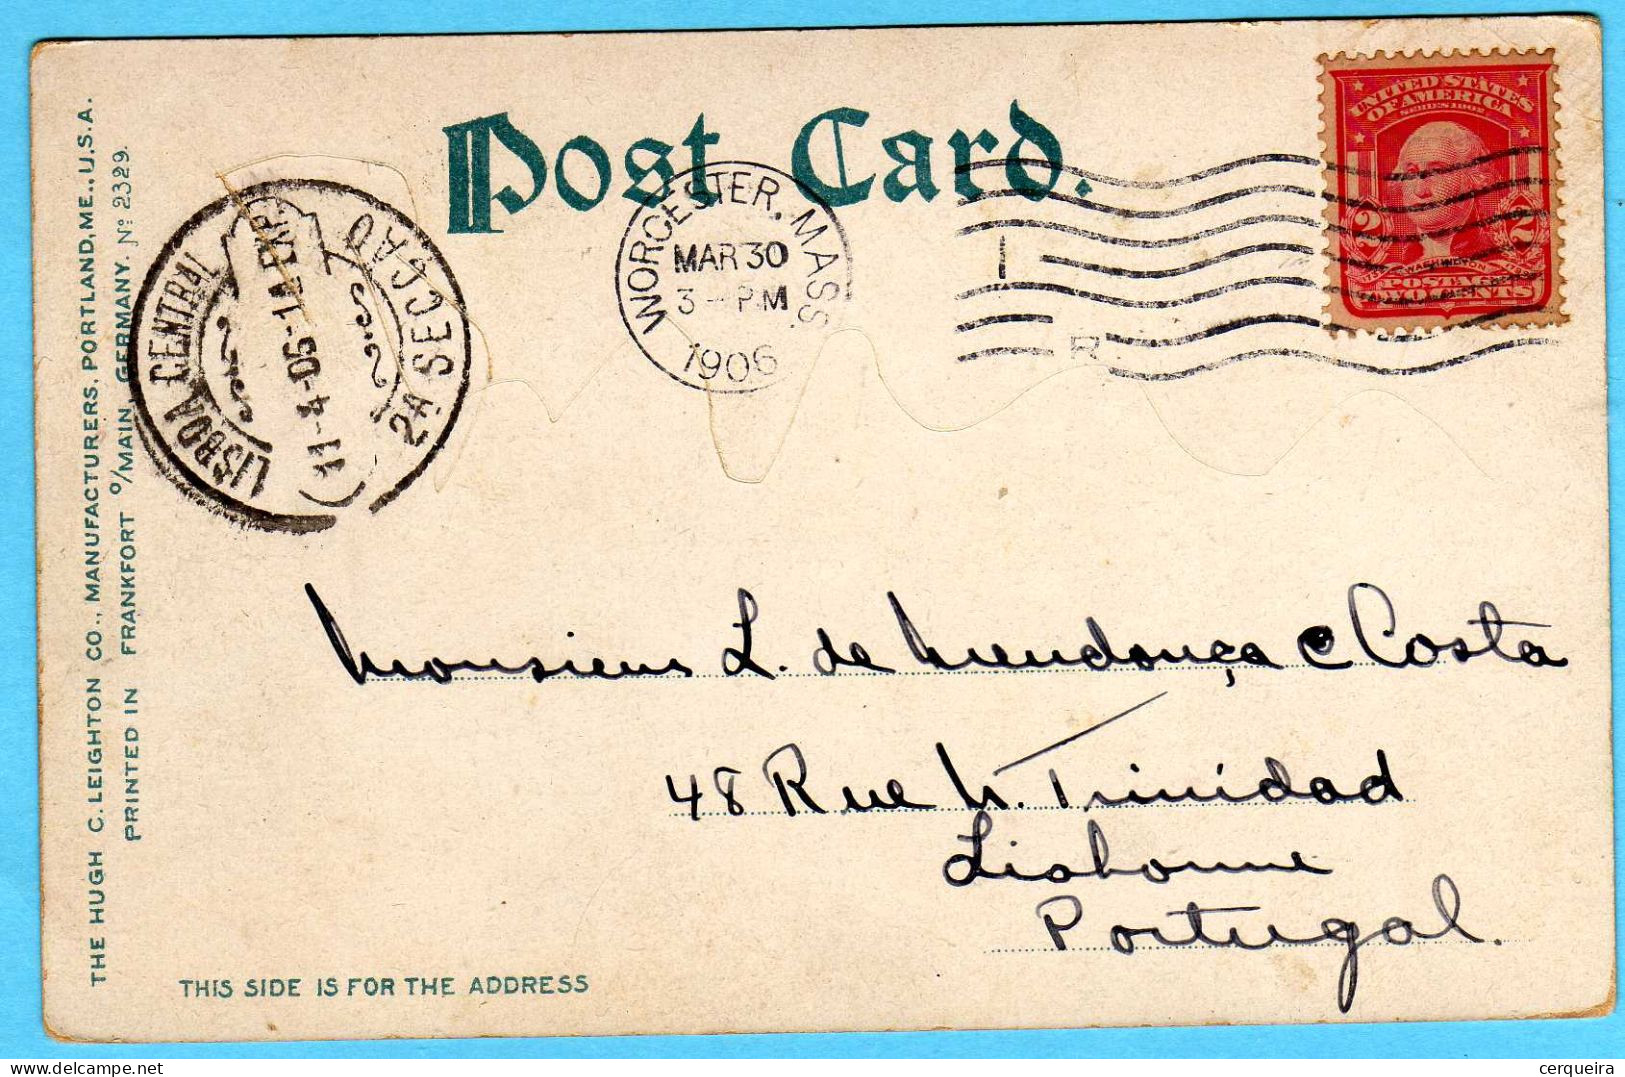 Post Card.
UNITED STATES
OF AMERICA
SERIES 1902
2 2
WASHINGTON
POSTAGE
TWO CENTS
WORCESTER, MASS.
MAR 30
3 - PM
1906
1
R
LISBOA CENTRAL
11-4-06-1A EXP
2A SECCAO
THE HUGH C. LEIGHTON CO., MANUFACTURERS, PORTLAND, ME., U.S.A.
PRINTED IN FRANKFORT O/MAIN, GERMANY. Nº 2329.
Monsieur L. de Mendonça e Costa
48 Rue N. Trinidad
Lisbonne
Portugal.
THIS SIDE IS FOR THE ADDRESS
cerqueira